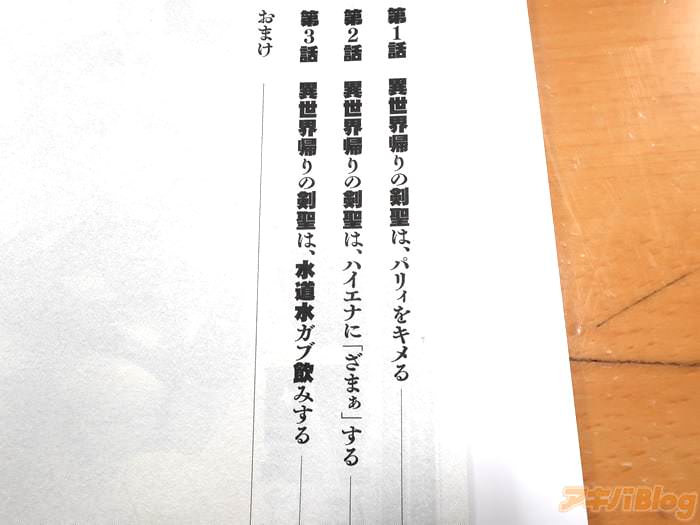 第1話 異世界帰りの剣聖は、パリィをキメる
第2話 異世界帰りの剣聖は、ハイエナに「ざまぁ」する
第3話 異世界帰りの剣聖は、水道水ガブ飲みする
おまけ
アキバBlog